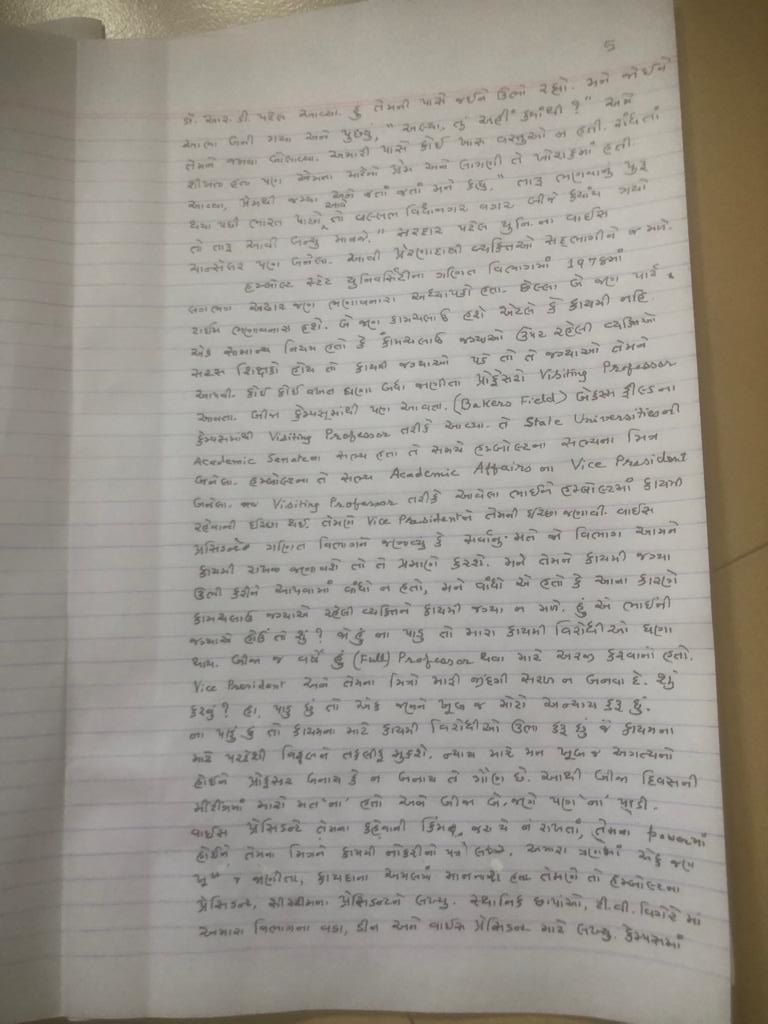 5
પ્રો. આર. ડી. પટેલ આવ્યા. હું તેમની પાસે જઈને ઉભો રહ્યો. મને જોઈને
આભા બની ગયા અને પુછ્યું, "અલ્યા, તું અહીં ક્યાંથી?" અમે
તેમને જમવા બોલાવ્યા. અમારી પાસે કોઈ ખાસ વસ્તુઓ ન હતી. રાંધતાં
શીખતા હતા પણ એમના માટેનો પ્રેમ અને લાગણી તે ખોરાકમાં હતી.
આવ્યા, પ્રેમથી જમ્યા અને જતાં જતાં મને કહ્યું, "તારૂ ભણવાનું પુરૂ
થયા પછી ભારત પાછો આવે તો વલ્લભ વિદ્યાનગર વગર બીજે ક્યાંય ગયો
તો તારૂ આવી બન્યુ માનજે." સરદાર પટેલ યુનિ. ના વાઈસ
ચાન્સેલર પણ બનેલા. આવી પ્રેરણાદાયી વ્યક્તિઓ સદ્ભાગીને જ મળે.
હમ્બોલ્ટ સ્ટેટ યુનિવર્સિટીના ગણિત વિભાગમાં 1978માં
લગભગ અઢાર જણ ભણાવનારા અધ્યાપકો હતા. છેલ્લા બે જણ પાર્ટ
ટાઈમ ભણાવનારા હશે. બે જણ કામચલાઉ હશે એટલે કે કાયમી નહિ.
એક સામાન્ય નિયમ હતો કે કામચલાઉ જગ્યાઓ ઉપર રહેલી વ્યક્તિઓ
સરસ શિક્ષકો હોય તો કાયમી જગ્યાઓ પડે તો તે જગ્યાઓ તેમને
આપવી. કોઈ કોઈ વખત ઘણા બધા જાણીતા પ્રોફેસરો Visiting Professor
આવતા. બીજા કેમ્પસમાંથી પણ આવતા. (Bakers Field) બેકર્સ ફીલ્ડના
કેમ્પસમાંથી Visiting Professor તરીકે આવ્યા. તે State Universitiesની
Academic Senateના સભ્ય હતા તે સમયે હમ્બોલ્ટના સભ્યના મિત્ર
બનેલા. હમ્બોલ્ટના તે સભ્ય Academic Affairs ના Vice President
બનેલા. Visiting Professor તરીકે આવેલા ભાઈને હમ્બોલ્ટમાં કાયમી
રહેવાની ઈચ્છા થઈ તેમણે Vice Presidentને તેમની ઈચ્છા જણાવી. વાઈસ
પ્રેસિડન્ટે ગણિત વિભાગને જણાવ્યું કે સર્વાનુમતે જો વિભાગ આમને
કાયમી રાખવા જણાવશે તો તે પ્રમાણે કરશે. મને તેમને કાયમી જગ્યા
ઉભી કરીને આપવામાં વાંધો ન હતો, મને વાંધો એ હતો કે આના કારણે
કામચલાઉ જગ્યાએ રહેલી વ્યક્તિને કાયમી જગ્યા ન મળે. હું એ ભાઈની
જગ્યાએ હોઉં તો શું? જો હું ના પાડુ તો મારા કાયમી વિરોધીઓ ઘણા
થાય. બીજા જ વર્ષે હું (Full) Professor થવા માટે અરજી કરવાનો હતો.
Vice President અને તેમના મિત્રો મારી જીંદગી સરળ ન બનવા દે. શું
કરવું? હા, પાડુ છું તો એક જણને ખૂબ જ મોટો અન્યાય કરૂ છું.
ના પાડું છું તો કાયમના માટે કાયમી વિરોધીઓ ઉભા કરૂ છું જે કાયમના
માટે પરદેશી વિઠ્ઠલને તકલીફ મુકશે. ન્યાય માટે મન ખૂબ જ અગત્યનો
હોઈને પ્રોફેસર બનાય કે ન બનાય તે ગૌણ છે. આથી બીજા દિવસની
મીટીંગમાં મારો મત 'ના' હતો અને બીજા બે જણે પણ 'ના' પાડી.
વાઈસ પ્રેસિડન્ટે તેમના કહેવાની કિંમત જરા યે ન રાખતાં, તેમના powerમાં
હોઈને તેમના મિત્રને કાયમી નોકરીનો પત્ર લખ્યો. અમારા ત્રણમાં એક જણ
ખૂબ જ જાણીતા, કાયદાના અમલમાં માનનારા હતા તેમણે તો હમ્બોલ્ટના
પ્રેસિડન્ટ, સીસ્ટીમના પ્રેસિડન્ટને લખ્યુ. સ્થાનિક છાપાંઓ, ટી.વી. વિગેરે માં
અમારા વિભાગના વડા, ડીન અને વાઈસ પ્રેસિડન્ટ માટે લખ્યુ. કેમ્પસમાં